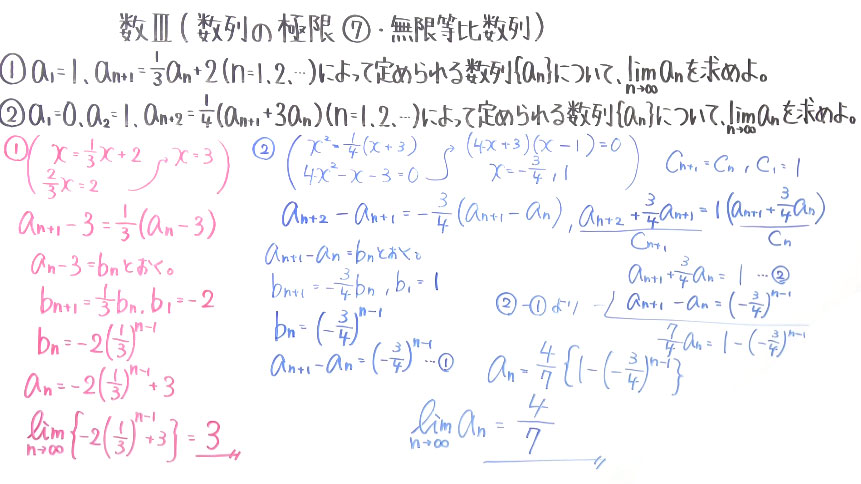 数Ⅲ(数列の極限⑦・無限等比数列)
①a₁=1、aₙ₊₁=1/3aₙ+2(n=1,2,…)によって定められる数列{aₙ}について、lim n→∞ aₙを求めよ。
②a₁=0、a₂=1、aₙ₊₂=1/4(aₙ₊₁+3aₙ)(n=1,2,…)によって定められる数列{aₙ}について、lim n→∞ aₙを求めよ。
①(x=1/3x+2 x=3
2/3x=2)
aₙ₊₁-3=1/3(aₙ-3)
aₙ-3=bₙとおく。
bₙ₊₁=1/3bₙ, b₁=-2
bₙ=-2(1/3)ⁿ⁻¹
aₙ=-2(1/3)ⁿ⁻¹+3
lim n→∞ {-2(1/3)ⁿ⁻¹+3}=3
②(x²=1/4(x+3) (4x+3)(x-1)=0
4x²-x-3=0 x=-3/4,1)
Cₙ₊₁=Cₙ, C₁=1
aₙ₊₂-aₙ₊₁=-3/4(aₙ₊₁-aₙ), aₙ₊₂+3/4aₙ₊₁=1(aₙ₊₁+3/4aₙ)
Cₙ₊₁ Cₙ
aₙ₊₁-aₙ=bₙとおく。
bₙ₊₁=-3/4bₙ, b₁=1
bₙ=(-3/4)ⁿ⁻¹
aₙ₊₁-aₙ=(-3/4)ⁿ⁻¹…①
aₙ₊₁+3/4aₙ=1…②
②-①より -) aₙ₊₁-aₙ=(-3/4)ⁿ⁻¹
7/4aₙ=1-(-3/4)ⁿ⁻¹
aₙ=4/7{1-(-3/4)ⁿ⁻¹}
lim n→∞ aₙ=4/7